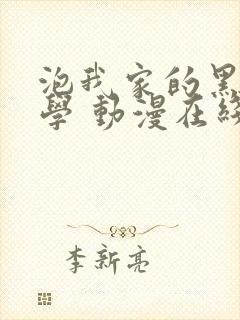 泡我家的黑
學 動漫在線
李新亮